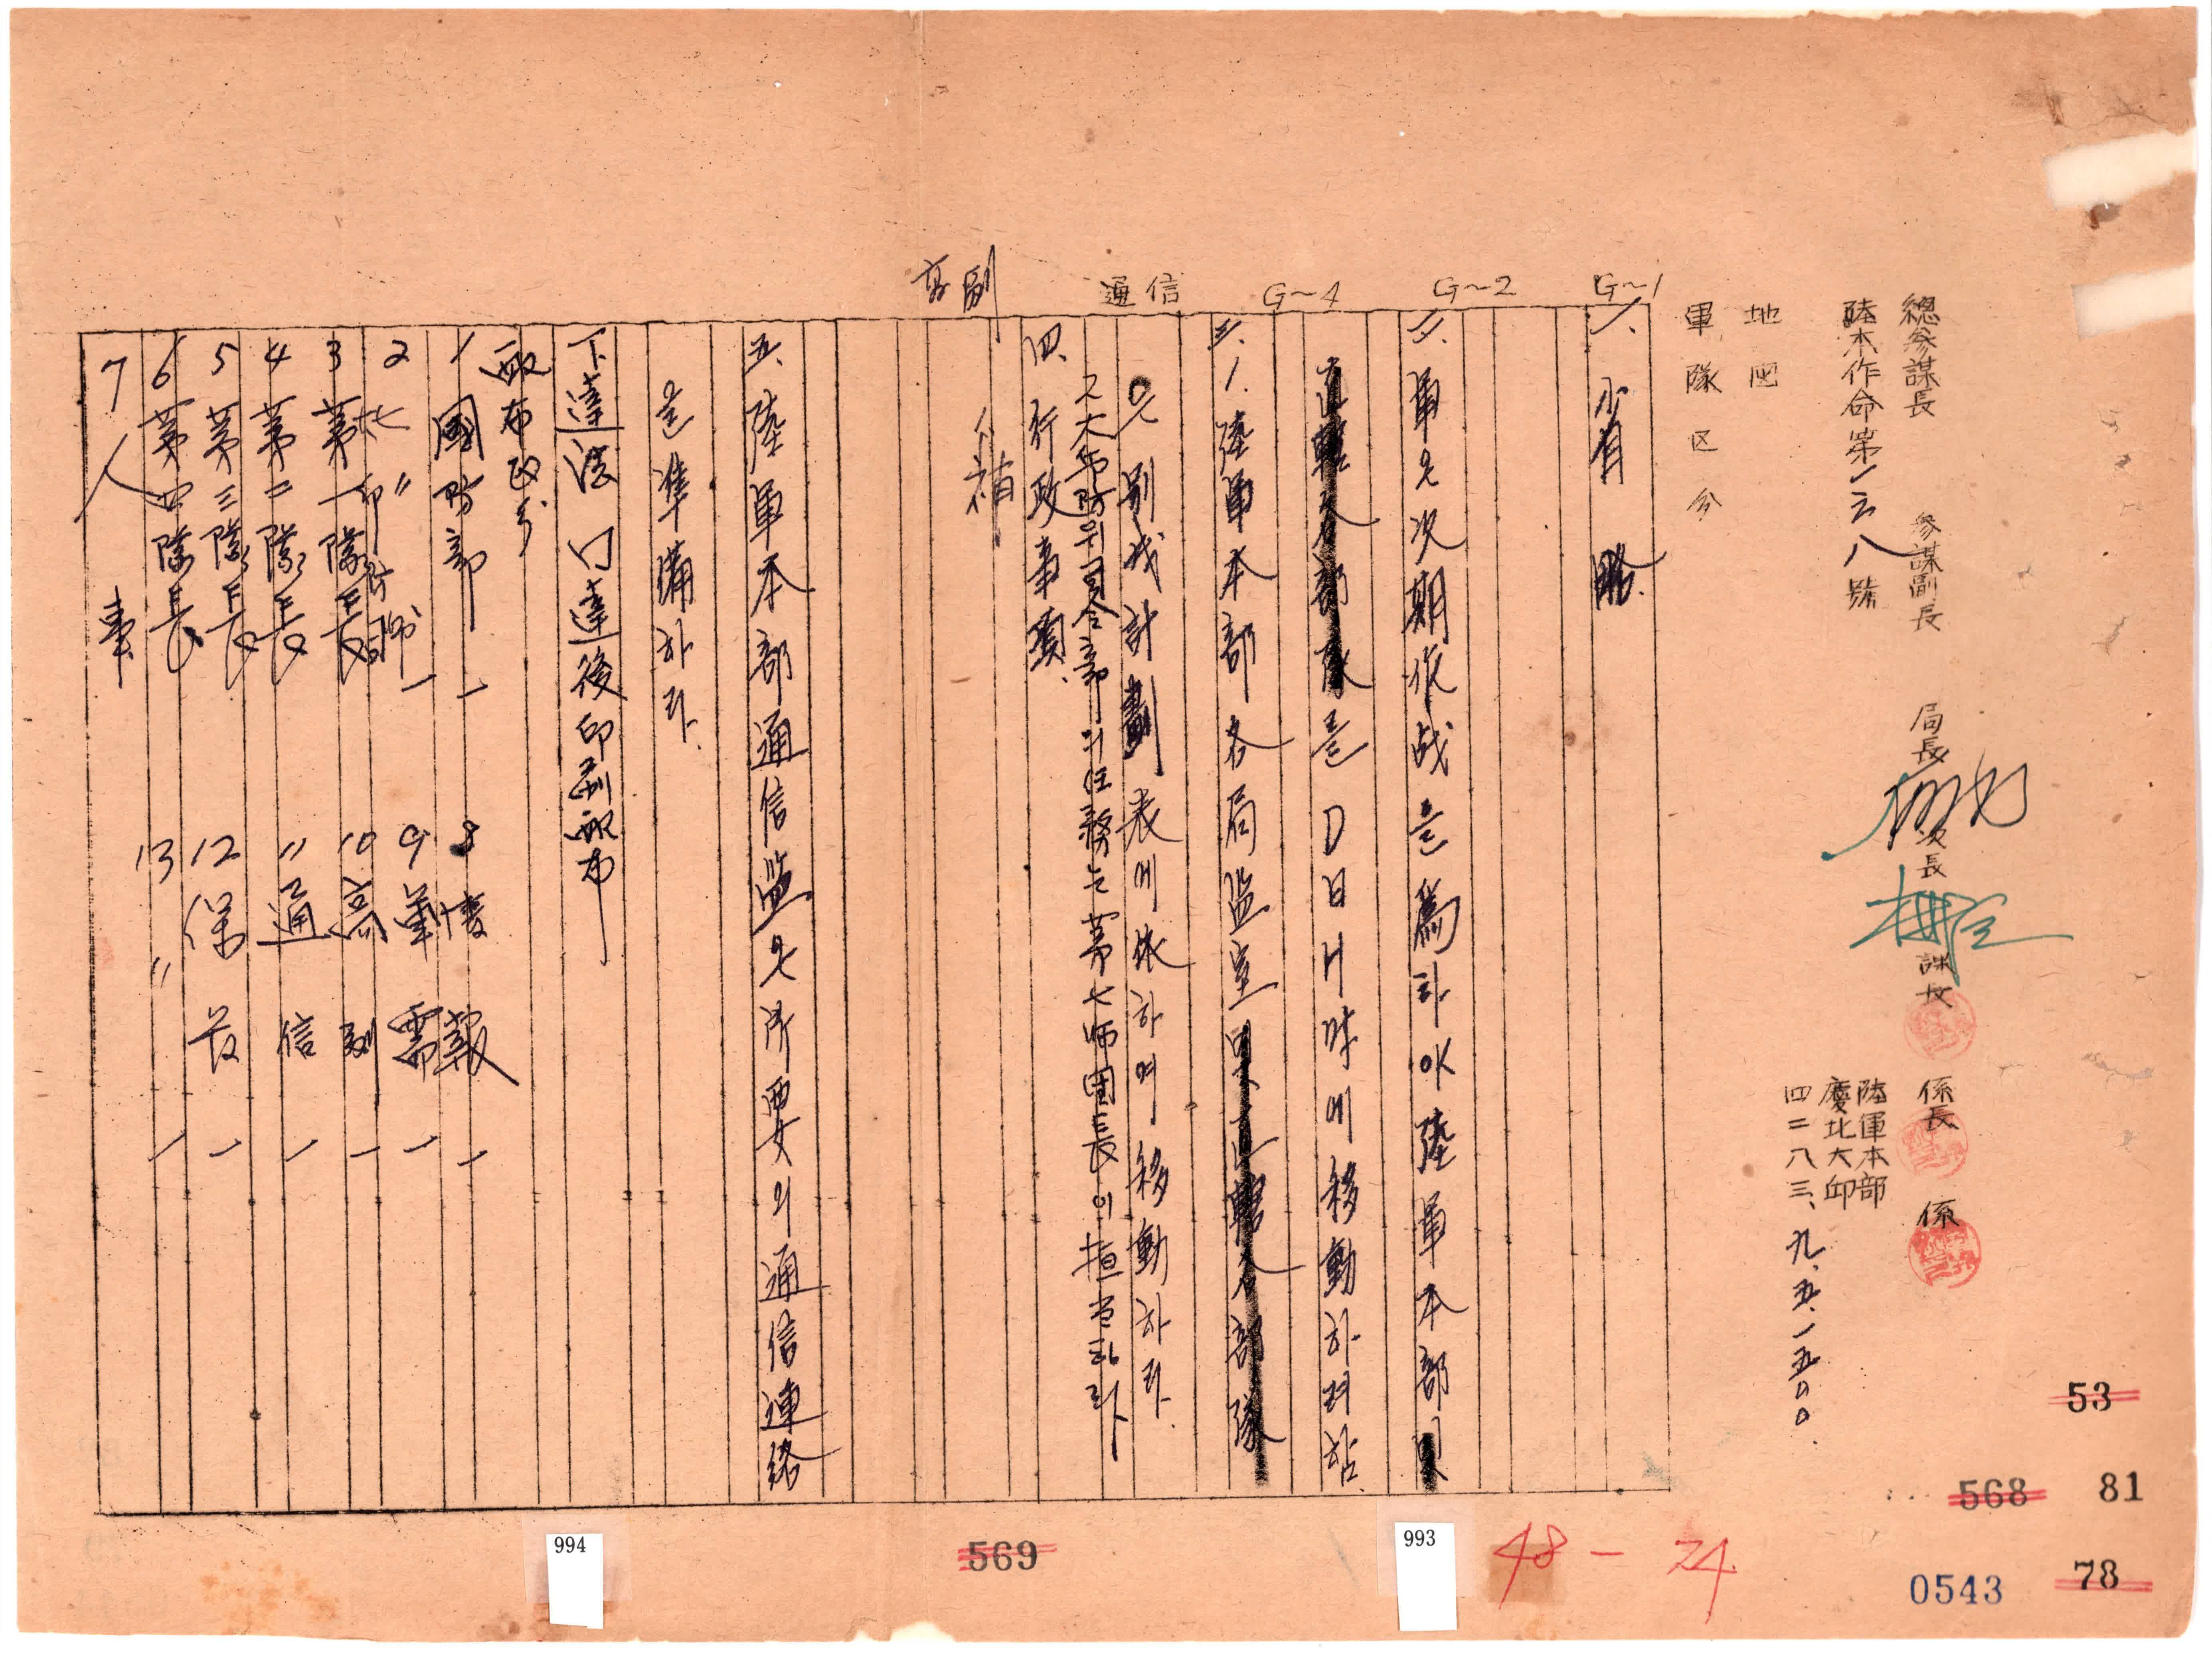 總參謀長 參謀副長 局長 次長 課長 係長 係
陸本作命第一二八號
陸軍本部
慶北大邱
四二八三、九、五、一五〇〇
地図
軍隊区分
G~1
G~2
G~4
通信
高副
一、省略
二、軍은 次期作战을 爲하야 陸軍本部
를 D日H時에 移動하려 함
三、1. 陸軍本部各局監室
은 別战計劃表에 依하여 移動하라.
2 大邱防위司令部의 任務는 第七師團長이 担当하라
四、行政事項
人補
五、陸軍本部通信監은 所要의 通信連絡
을 準備하라.
下達法 口達後印刷配布
配布区分
1 國防部 一
2
3 第一部隊長
4 第二部隊長
5 第三部隊長
6 第四部隊長
7 人事
8 情報 一
9 軍需 一
10 高副 一
11 通信 一
12 保 一
13 〃 一
53
568
81
0543
78
569
993
994
48-74